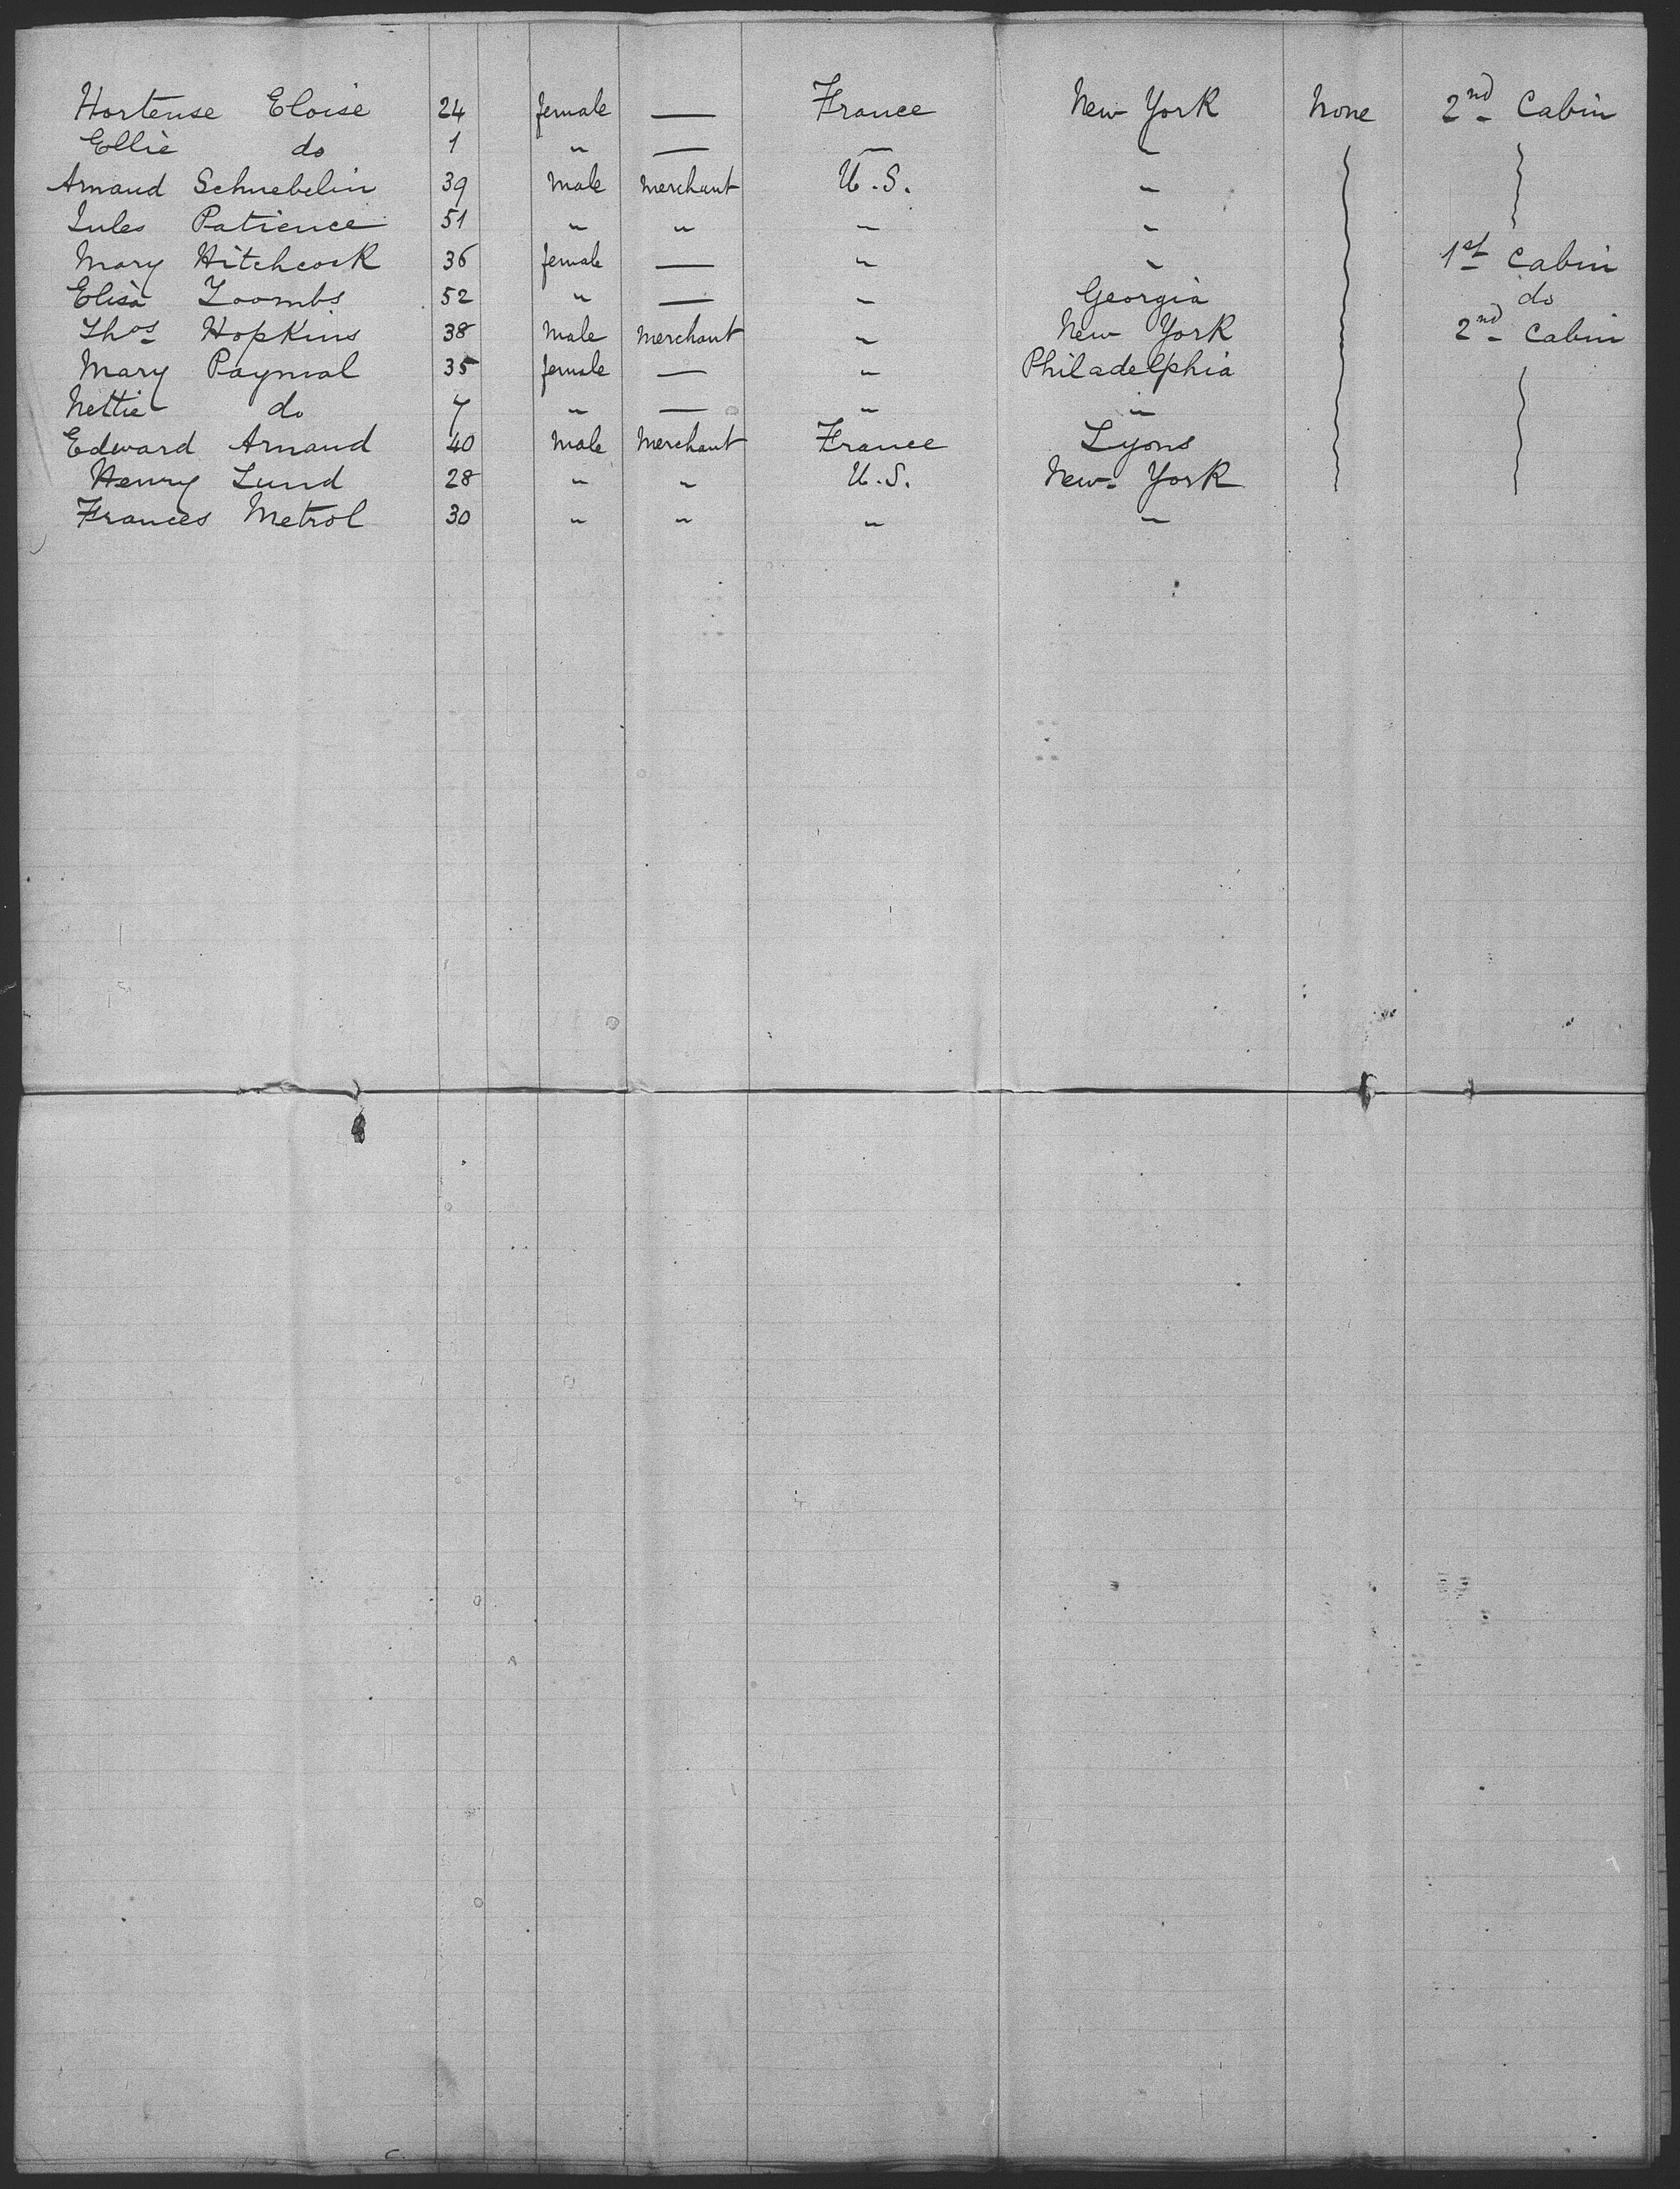 Hortense Eloise 24 female — France New York None 2nd Cabin
Ellie do 1 " — — "
Arnaud Schnebelin 39 Male Merchant U.S. "
Jules Patience 51 " " " "
Mary Hitchcock 36 female — " " 1st Cabin
Elisa Toombs 52 " — " Georgia do
Thos Hopkins 38 Male Merchant " New York 2nd Cabin
Mary Paynial 35 female — " Philadelphia
Nettie do 7 " — " "
Edward Arnaud 40 Male Merchant France Lyons
Henry Lund 28 " " U.S. New-York
Frances Metrol 30 " " " "